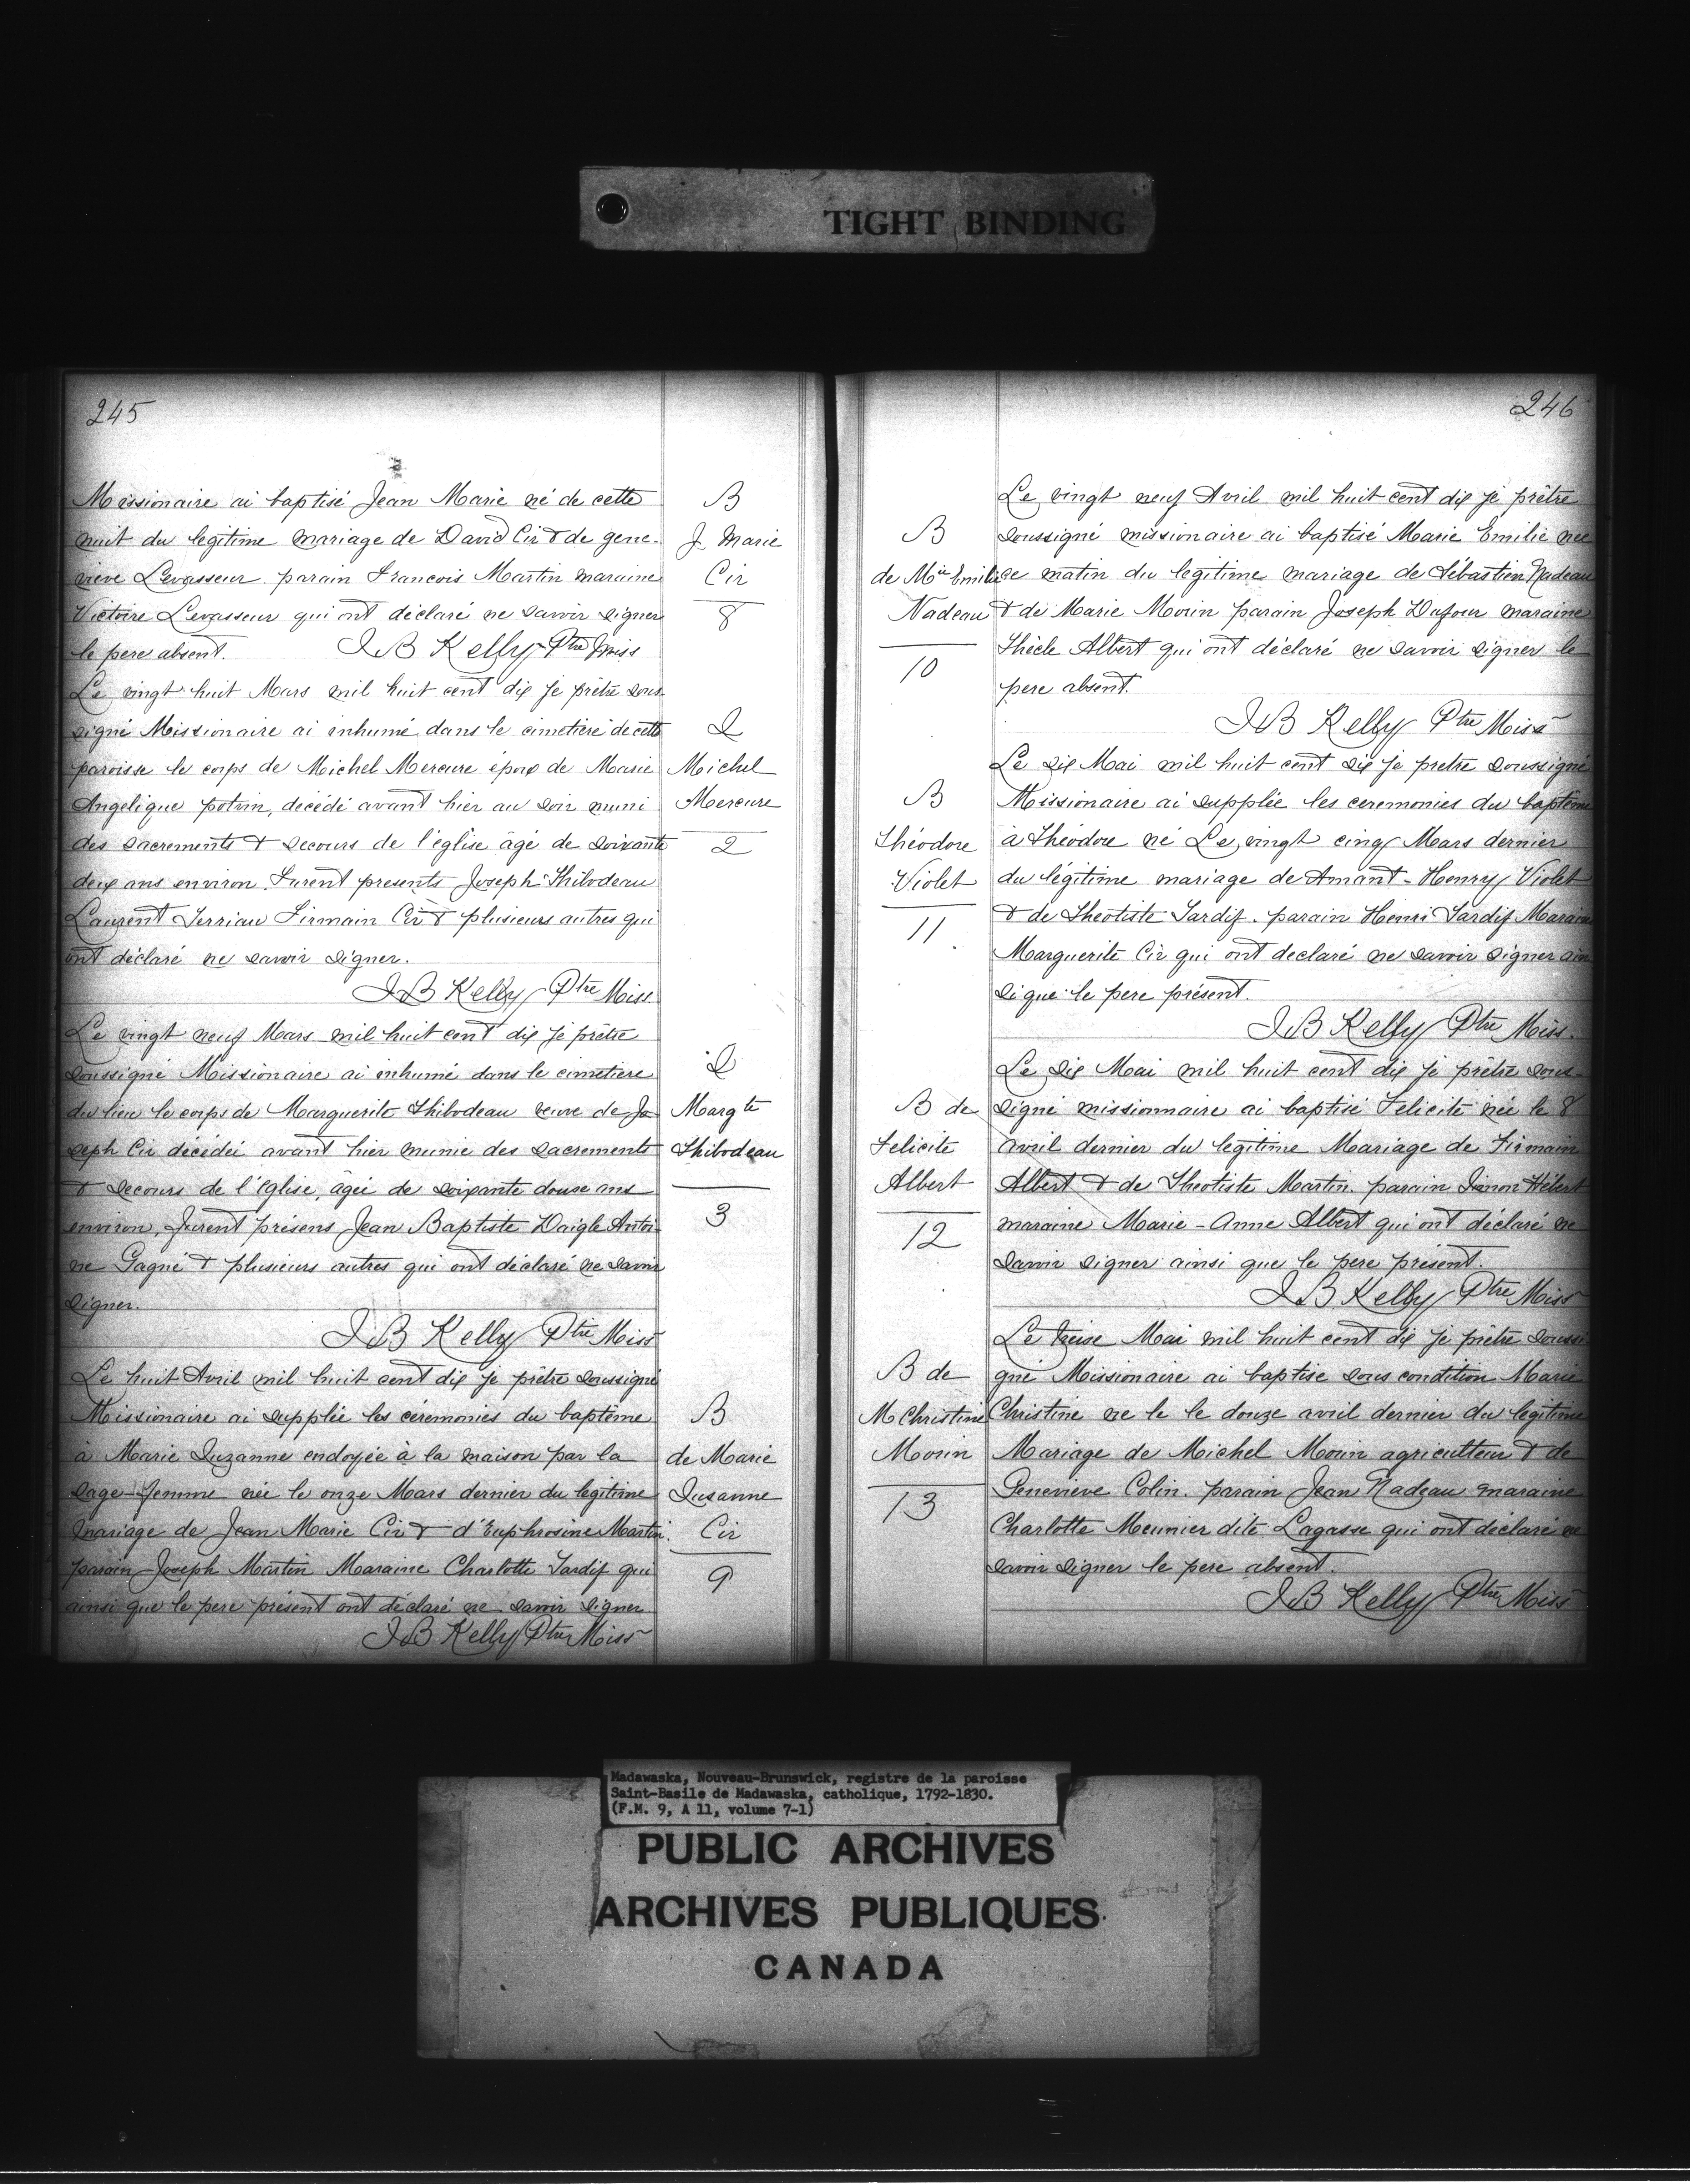 TIGHT BINDING
245
Missionaire ai baptisé Jean Marie né de cette
nuit du legitime mariage de David Cir & de gene-
vieve Levasseur. parain Francois Martin maraine
Victoire Levasseur qui ont déclaré ne savoir signer
le pere absent. J B Kelly Ptre Miss
B
J. Marie
Cir
8
Le vingt huit Mars mil huit cent dix je prêtre sous-
signé Missionaire ai inhumé dans le cimetiere de cette
paroisse le corps de Michel Mercure époux de Marie
Angelique potvin, décédé avant hier au soir muni
des sacrements & secours de l'église âgé de soixante
deux ans environ. Furent presents Joseph Thibodeau
Laurent Terriau Firmain Cir & plusieurs autres qui
ont déclaré ne savoir signer.
J B Kelly Ptre Miss
I
Michel
Mercure
2
Le vingt neuf Mars mil huit cent dix je prêtre
soussigné Missionaire ai inhumé dans le cimetiere
du lieu le corps de Marguerite Thibodeau veuve de Jo
seph Cir décédéi avant hier munie des sacrements
& secours de l'église, âgéi de soixante douse ans
environ, furent présens Jean Baptiste Daigle Antoi-
ne Gagné & plusieurs autres qui ont déclaré ne savoir
signer.
J B Kelly Ptre Miss
I
Margte
Thibodeau
3
Le huit Avril mil huit cent dix je prêtre soussigné
Missionaire ai supplée les céremonies du baptême
à Marie Suzanne endoyée à la maison par la
sage-femme née le onze Mars dernier du légitime
mariage de Jean Marie Cir & d'Euphrosine Martin.
parain Joseph Martin Maraine Charlotte Tardif qui
ainsi que le pere présent ont déclaré ne savoir signer
J B Kelly Ptre Miss
B
de Marie
Susanne
Cir
9
246
Le vingt neuf Avril mil huit cent dix je prêtre
soussigné missionaire ai baptisé Marie Emilie née
ce matin du legitime mariage de Sébastien Nadeau
& de Marie Morin parain Joseph Dufour maraine
Thècle Albert qui ont déclaré ne savoir signer le
pere absent.
J B Kelly Ptre Miss
B
de Mie Emilie
Nadeau
10
Le six Mai mil huit cent dix je pretre soussigné
Missionaire ai supplée les ceremonies du baptême
à Théodore né Le vingt cinq Mars dernier
du légitime mariage de Amant-Henry Violet
& de Theotiste Tardif. parain Henri Tardif Maraine
Marguerite Cir qui ont declaré ne savoir signer ain
si que le pere présent.
J B Kelly Ptre Miss.
B
Théodore
Violet
11
Le dix Mai mil huit cent dix je prêtre sous-
signé missionnaire ai baptisé Felicité née le 8
avril dernier du legitime Mariage de Firmain
Albert & de Theotiste Martin. parain Simon Hébert
maraine Marie-Anne Albert qui ont déclaré ne
savoir signer ainsi que le pere présent.
J B Kelly Ptre Miss
B de
Felicite
Albert
12
Le treise Mai mil huit cent dix je prêtre soussi
gné Missionaire ai baptise sous condition Marie
Christine ne le le douze avril dernier du legitime
Mariage de Michel Morin agriculteur & de
Genevieve Colin. parain Jean Nadeau maraine
Charlotte Meunier dite Lagasse qui ont déclaré ne
savoir signer le pere absent.
J B Kelly Ptre Miss
B de
M Christine
Morin
13
Madawaska, Nouveau-Brunswick, registre de la paroisse
Saint-Basile de Madawaska, catholique, 1792-1830.
(F.M. 9, A 11, volume 7-1)
PUBLIC ARCHIVES
ARCHIVES PUBLIQUES
CANADA